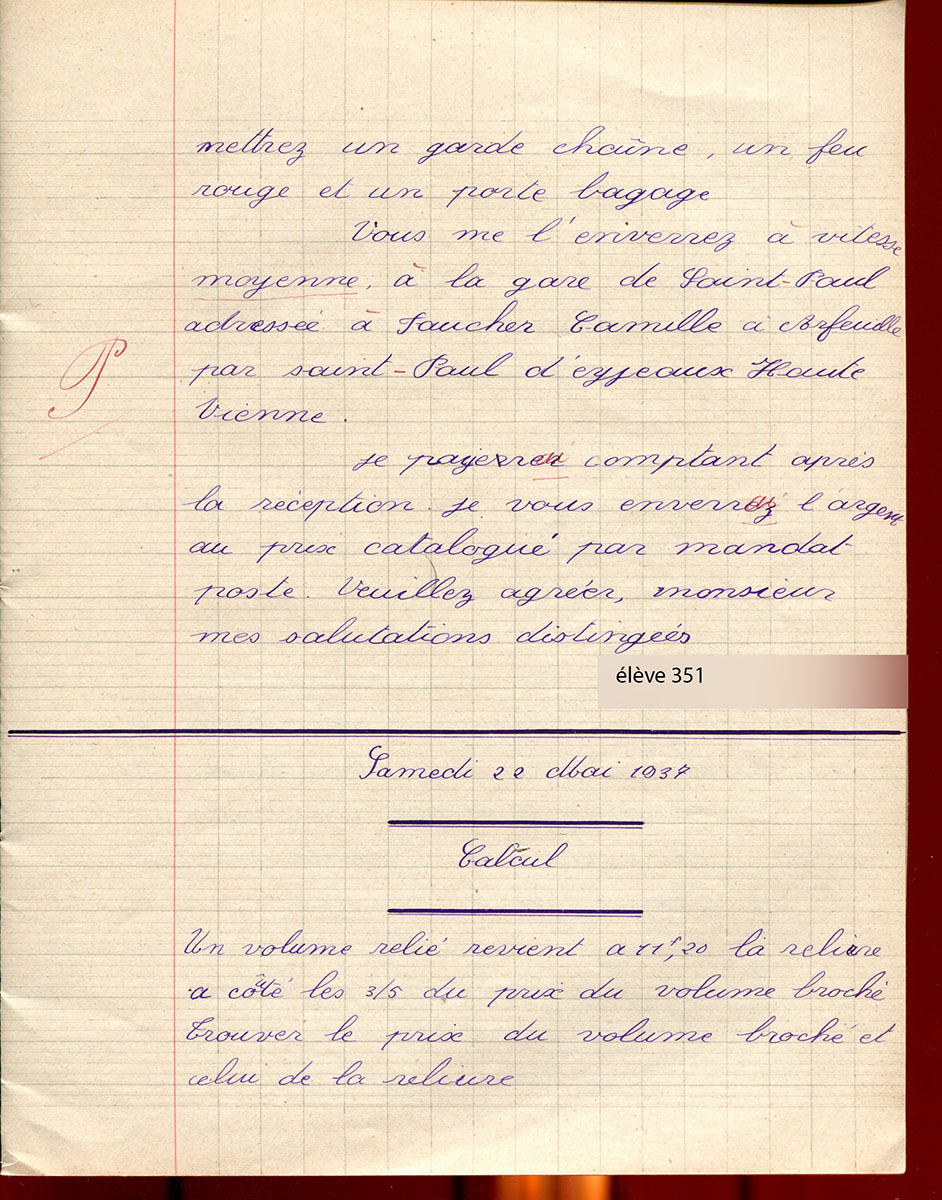 mettrez un garde chaîne, un feu
rouge et un porte bagage
Vous me l'enverrez à vitesse
moyenne, à la gare de Saint-Paul
adressée à Faucher Camille à Arfeuille
par saint-Paul d'eyjeaux Haute
Vienne.
P
je payerrai comptant après
la réception. je vous enverrai l'argent
au prix catalogué par mandat
poste. Veuillez agréer, monsieur
mes salutations distingeés
élève 351
Samedi 22 Mai 1937
Calcul
Un volume relié revient a 11f,20 la reliure
a coûté les 3/5 du prix du volume broché
Trouver le prix du volume broché et
celui de la reliure